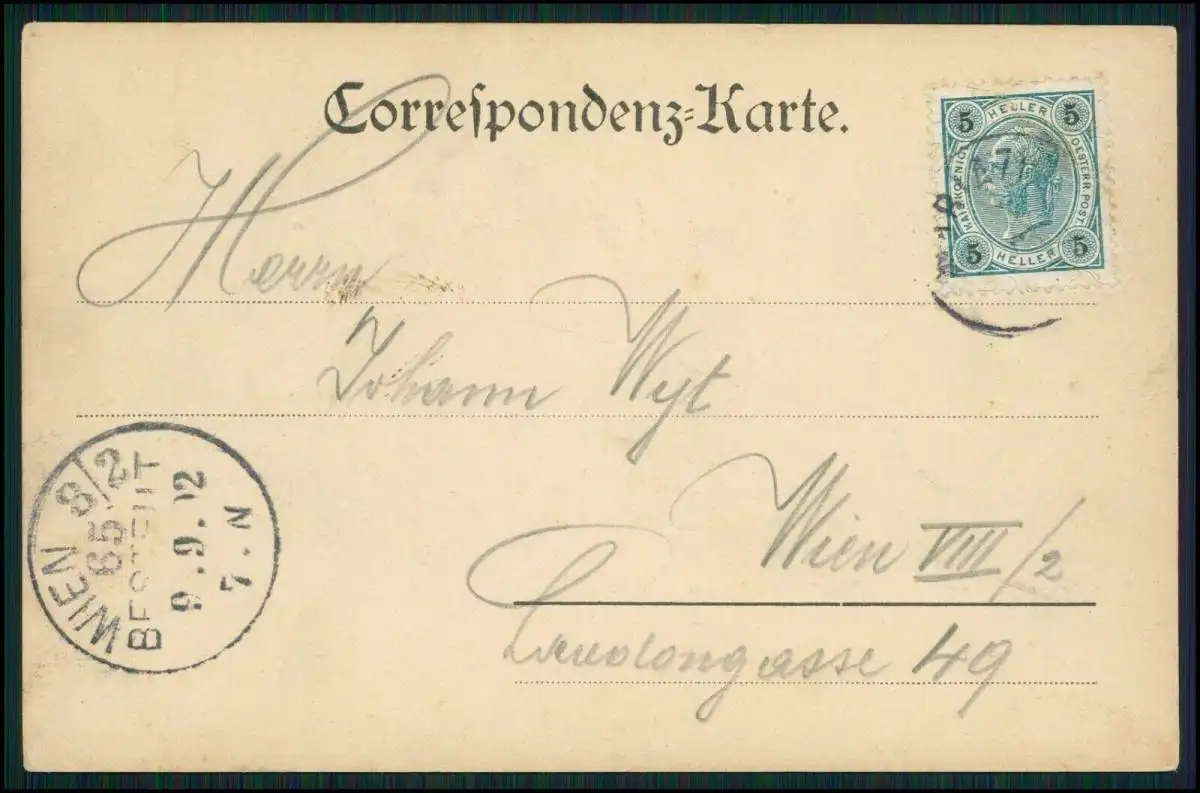 Correspondenz-Karte.
5 HELLER 5
KAIS. KOENIG. OESTERR. POST
5 HELLER 5
Herrn
Johann Wyt
Wien VIII/2
Laudongasse 49
WIEN 8/2
65
BESTELLT
9.9.02
7.N